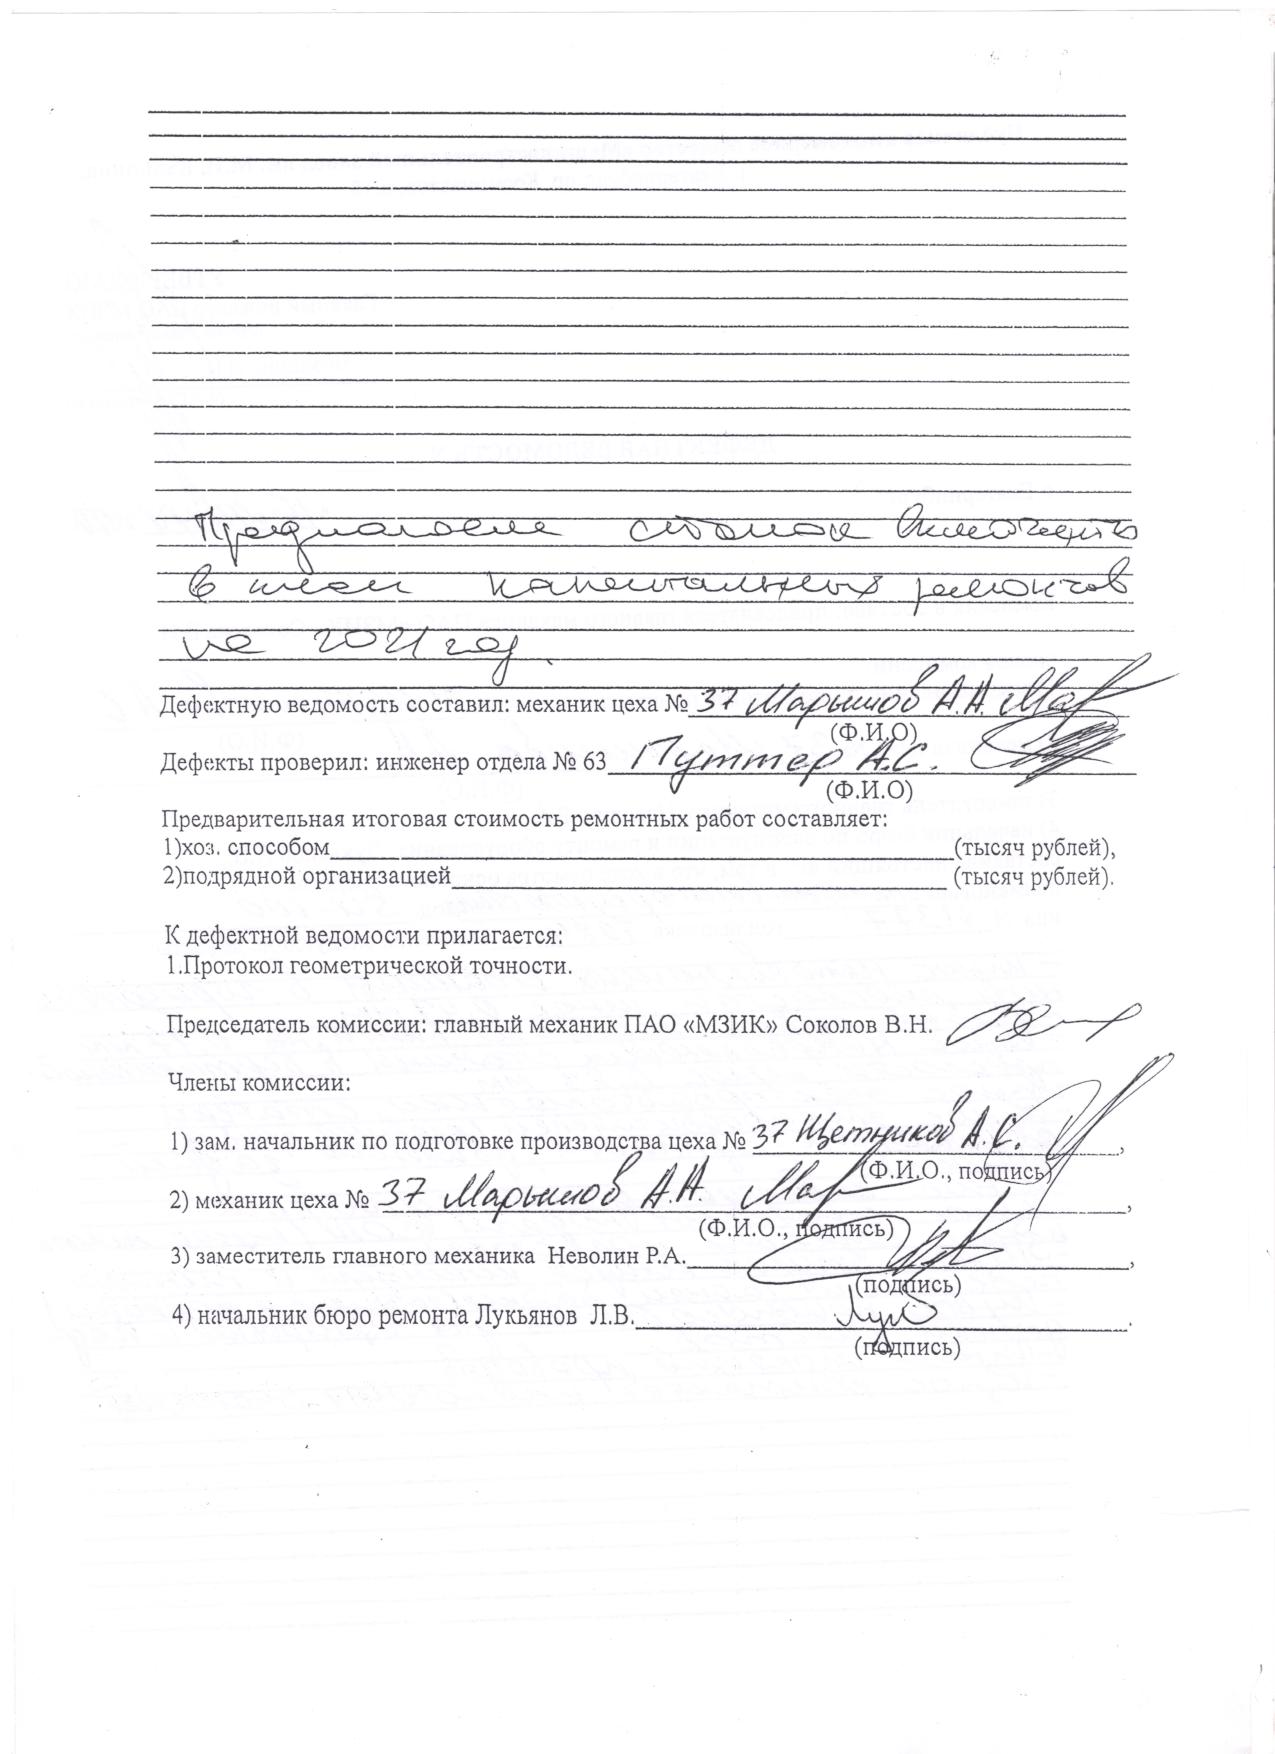 Предлагаем станок включить
в план капитальных ремонтов
на 2021 год.
Дефектную ведомость составил: механик цеха № 37 Марышов А.А.
(Ф.И.О)
Дефекты проверил: инженер отдела № 63 Путтер А.С.
(Ф.И.О)
Предварительная итоговая стоимость ремонтных работ составляет:
1)хоз. способом (тысяч рублей),
2)подрядной организацией (тысяч рублей).
К дефектной ведомости прилагается:
1.Протокол геометрической точности.
Председатель комиссии: главный механик ПАО «МЗИК» Соколов В.Н.
Члены комиссии:
1) зам. начальник по подготовке производства цеха № 37 Щетников А.С.,
(Ф.И.О., подпись)
2) механик цеха № 37 Марышов А.А.,
(Ф.И.О., подпись)
3) заместитель главного механика Неволин Р.А.,
(подпись)
4) начальник бюро ремонта Лукьянов Л.В.
(подпись)